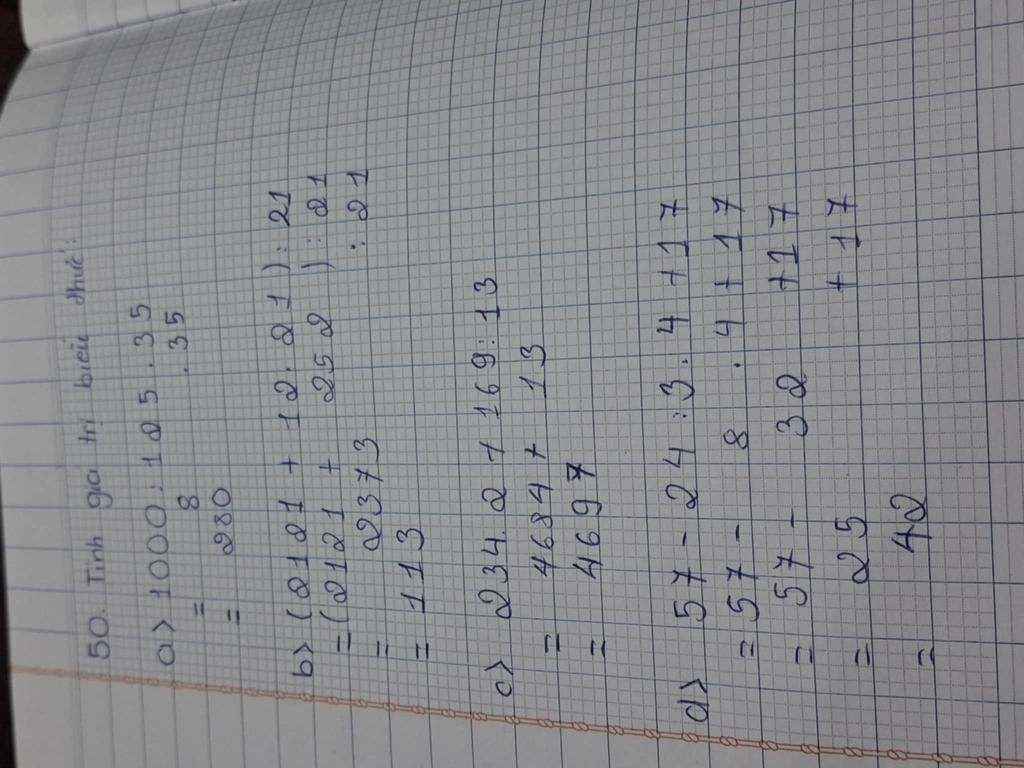 50. Tính giá trị biểu thức:
a> 1000 : 125 . 35
= 8 . 35
= 280
b> (2121 + 12 . 21) : 21
= (2121 + 252) : 21
= 2373 : 21
= 113
c> 234. 2 + 169 : 13
= 4684 + 13
= 4697
d> 57 - 24 : 3 . 4 + 17
= 57 - 8 . 4 + 17
= 57 - 32 + 17
= 25 + 17
= 42